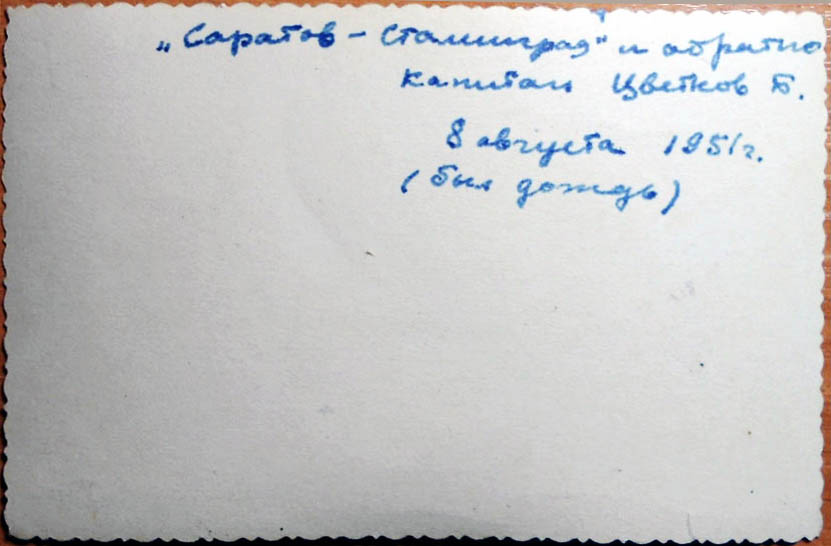 „Саратов – Сталинград" и обратно
капитан Цветков Б.
8 августа 1951г.
(был дождь)